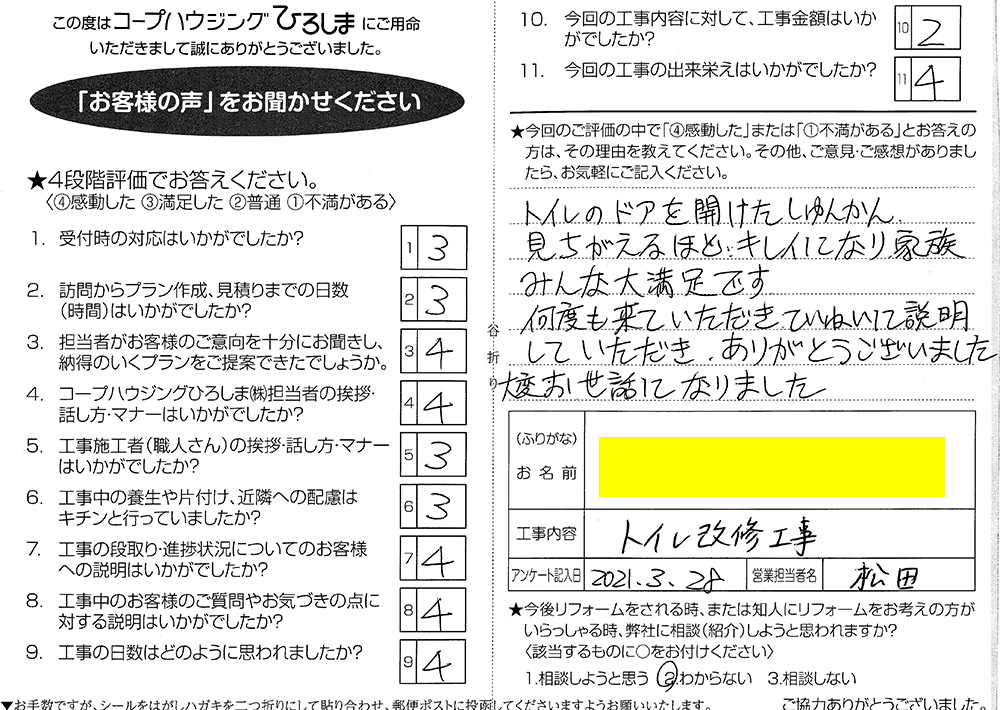 この度はコープハウジングひろしまにご用命
いただきまして誠にありがとうございました。
「お客様の声」をお聞かせください
★4段階評価でお答えください。
〈④感動した ③満足した ②普通 ①不満がある〉
1. 受付時の対応はいかがでしたか?
1 3
2. 訪問からプラン作成、見積りまでの日数
(時間)はいかがでしたか?
2 3
3. 担当者がお客様のご意向を十分にお聞きし、
納得のいくプランをご提案できたでしょうか。
3 4
4. コープハウジングひろしま㈱担当者の挨拶・
話し方・マナーはいかがでしたか?
4 4
5. 工事施工者(職人さん)の挨拶・話し方・マナー
はいかがでしたか?
5 3
6. 工事中の養生や片付け、近隣への配慮は
キチンと行っていましたか?
6 3
7. 工事の段取り・進捗状況についてのお客様
への説明はいかがでしたか?
7 4
8. 工事中のお客様のご質問やお気づきの点に
対する説明はいかがでしたか?
8 4
9. 工事の日数はどのように思われましたか?
9 4
▼お手数ですが、シールをはがしハガキを二つ折りにして貼り合わせ、郵便ポストに投函してくださいますようお願いいたします。
谷折り
10. 今回の工事内容に対して、工事金額はいか
がでしたか?
10 2
11. 今回の工事の出来栄えはいかがでしたか?
11 4
★今回のご評価の中で「④感動した」または「①不満がある」とお答えの
方は、その理由を教えてください。その他、ご意見・ご感想がありまし
たら、お気軽にご記入ください。
トイレのドアを開けたしゅんかん、
見ちがえるほど、キレイになり家族
みんな大満足です
何度も来ていただきていねいに説明
していただき、ありがとうございました
大変お世話になりました
(ふりがな)
お名前
工事内容 トイレ改修工事
アンケート記入日 2021.3.28 営業担当者名 松田
★今後リフォームをされる時、または知人にリフォームをお考えの方が
いらっしゃる時、弊社に相談(紹介)しようと思われますか?
〈該当するものに○をお付けください〉
1.相談しようと思う 2.わからない 3.相談しない
ご協力ありがとうございました。